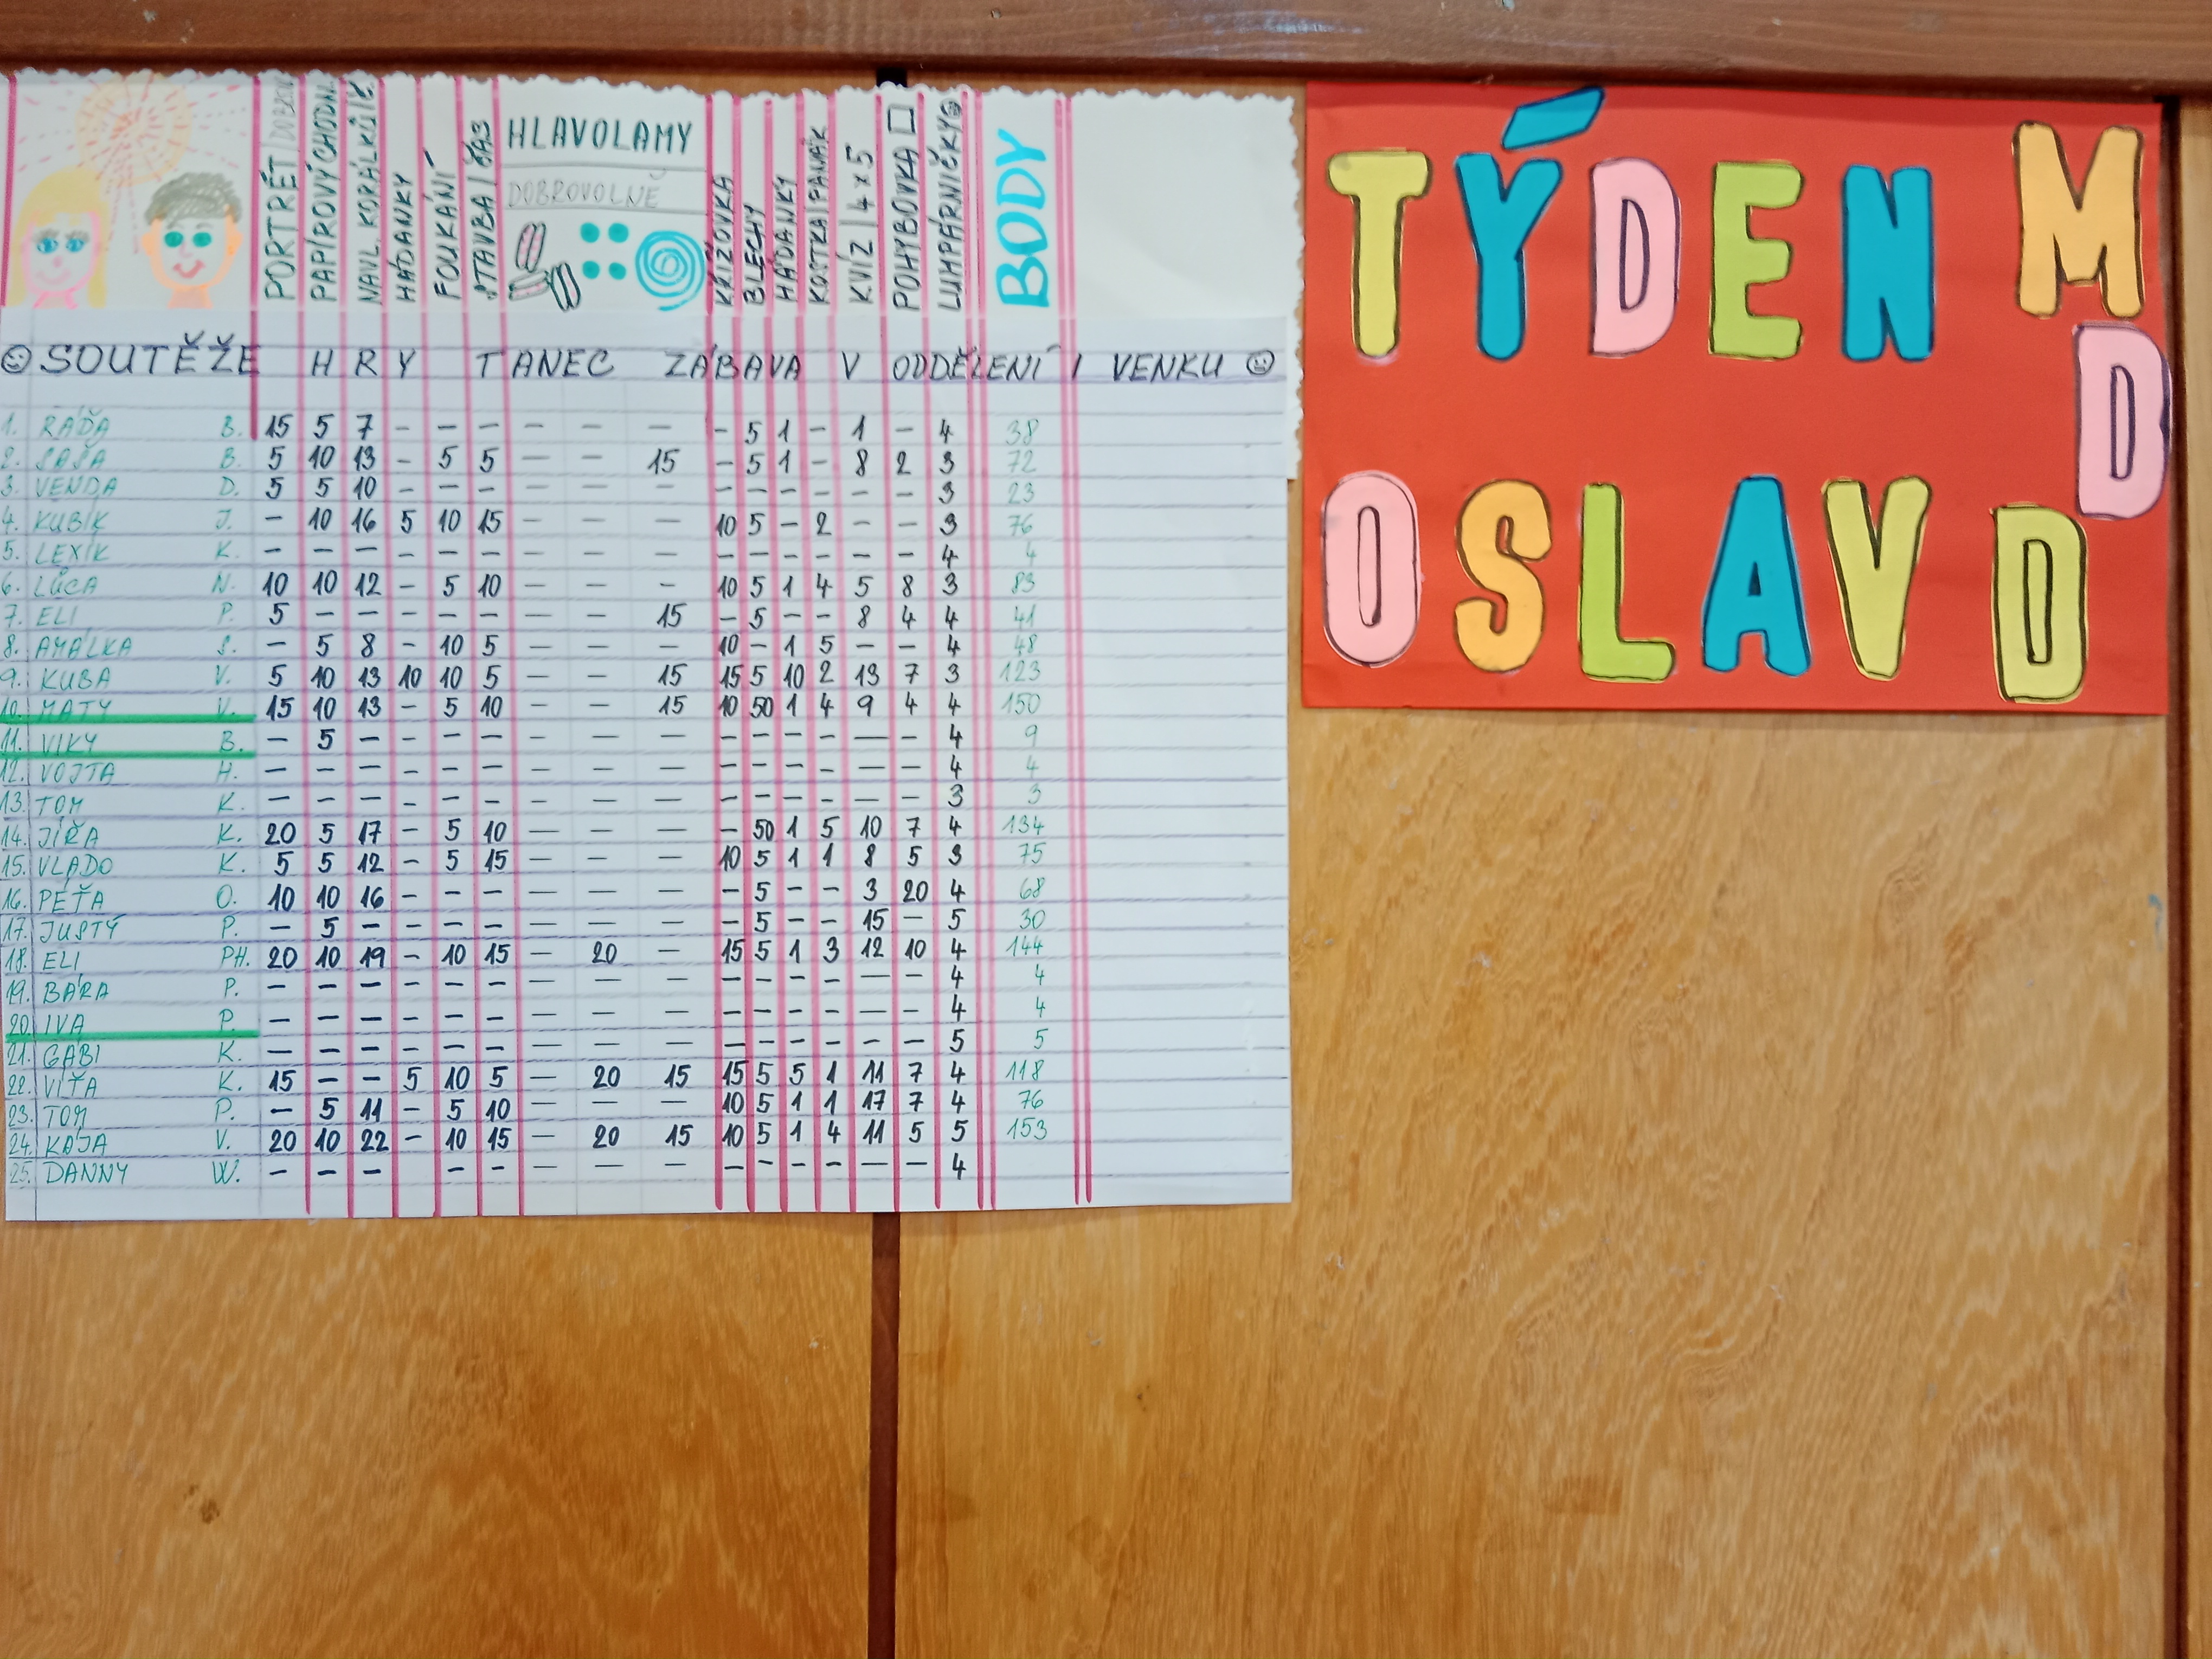 PORTRÉT
PAPÍROVÝ CHODN.
NAVL. KORÁLKŮ
HÁDANKY
FOUKÁNÍ
STAVBA / ČAS
HLAVOLAMY
DOBROVOLNÉ
KŘÍŽOVKA
BLECHY
HÁDANKY
KOSTKA PANÁK
KVÍZ / 4x5
POHYBOVKA
LUMPÁRNIČKY
BODY
SOUTĚŽE HRY TANEC ZÁBAVA V ODDĚLENÍ I VENKU
1. RÁĎA B. 15 5 7 - - - - - - - 5 1 - 1 - 4 38
2. SAŠA B. 5 10 13 - 5 5 - - 15 - 5 1 - 8 2 3 72
3. VENDA D. 5 5 10 - - - - - - - - - - - - 3 23
4. KUBÍK J. - 10 16 5 10 15 - - - 10 5 - 2 - - 3 76
5. LEXÍK K. - - - - - - - - - - - - - - - 4 4
6. LŮCA N. 10 10 12 - 5 10 - - - 10 5 1 4 5 8 3 83
7. ELI P. 5 - - - - - - - 15 - 5 - - 8 4 4 41
8. AMÁLKA S. - 5 8 - 10 5 - - - 10 - 1 5 - - 4 48
9. KUBA V. 5 10 13 10 10 5 - - 15 15 5 10 2 13 7 3 123
10. MATY V. 15 10 13 - 5 10 - - 15 10 50 1 4 9 4 4 150
11. VIKY B. - 5 - - - - - - - - - - - - - 4 9
12. VOJTA H. - - - - - - - - - - - - - - - 4 4
13. TOM K. - - - - - - - - - - - - - - - 3 3
14. JÍŘA K. 20 5 17 - 5 10 - - - - 50 1 5 10 7 4 134
15. VLADO K. 5 5 12 - 5 15 - - - 10 5 1 1 8 5 3 75
16. PÉŤA O. 10 10 16 - - - - - - - 5 - - 3 20 4 68
17. JUSTÝ P. - 5 - - - - - - - - 5 - - 15 - 5 30
18. ELI PH. 20 10 19 - 10 15 - 20 - 15 5 1 3 12 10 4 144
19. BÁRA P. - - - - - - - - - - - - - - - 4 4
20. IVA P. - - - - - - - - - - - - - - - 4 4
21. GABI K. - - - - - - - - - - - - - - - 5 5
22. VÍŤA K. 15 - - 5 10 5 - 20 15 15 5 5 1 11 7 4 118
23. TOM P. - 5 11 - 5 10 - - - 10 5 1 1 17 7 4 76
24. KÁJA V. 20 10 22 - 10 15 - 20 15 10 5 1 4 11 5 5 153
25. DANNY W. - - - - - - - - - - - - - - 4
TÝDEN
OSLAV
MDD